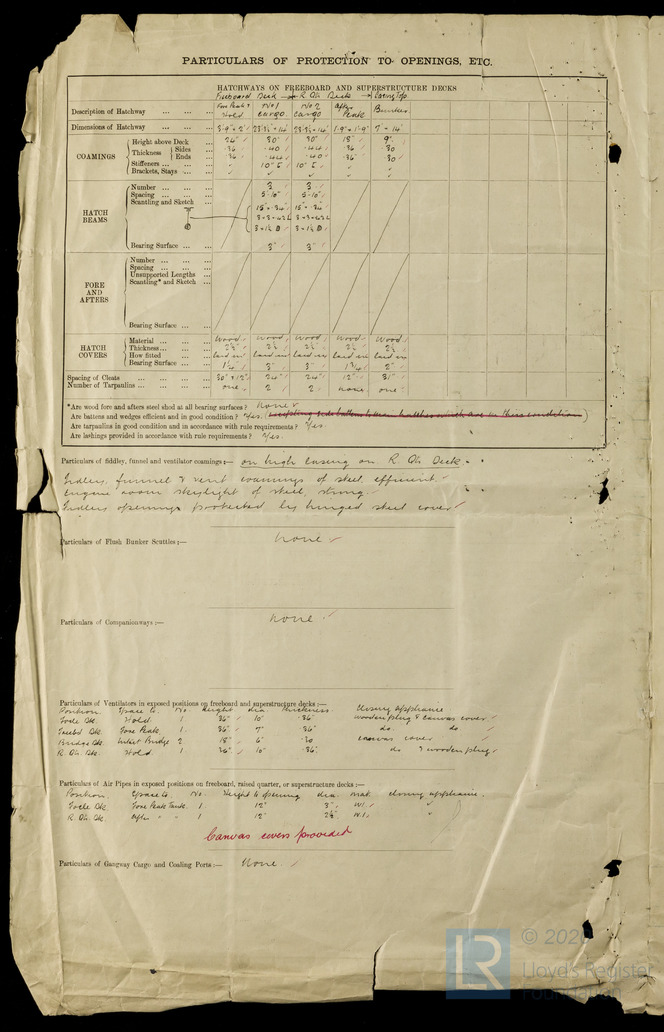 PARTICULARS OF PROTECTION TO OPENINGS, ETC.
HATCHWAYS ON FREEBOARD AND SUPERSTRUCTURE DECKS
Freeboard Deck → R. Qr. Deck → Casing Top
Description of Hatchway ... ... ... Fore Peak & Hold No 1 cargo No 2 cargo After Peak Bunker
Dimensions of Hatchway ... ... ...
COAMINGS
Height above Deck ... 24" 30" 30" 18" 9"
Thickness Sides ... .36 .40 .44 .36 .30
Ends ... .36 .44 .40 .36 .30
Stiffeners ... ... ✓ 10" 10" ✓ ✓
Brackets, Stays ... ... ✓ ✓ ✓ ✓ ✓
HATCH BEAMS
Number ... ... ... 3 3
Spacing ... ... ... 5'-10" 5'-10"
Scantling and Sketch ...
Bearing Surface ... ... 3" 3"
FORE AND AFTERS
Number ... ... ...
Spacing ... ... ...
Unsupported Lengths ...
Scantling* and Sketch ...
Bearing Surface ... ...
HATCH COVERS
Material ... ... ... Wood Wood Wood Wood Wood
Thickness ... ... ... 2½ 2½ 2½ 2½ 2½
How fitted ... ...
Bearing Surface ... ... 1¾ 3" 3" 1¾ 2"
Spacing of Cleats ... ... ... ... 24" 24" 12" 31"
Number of Tarpaulins ... ... ... one 2 2 none one
*Are wood fore and afters steel shod at all bearing surfaces? None ✓
Are battens and wedges efficient and in good condition? Yes.
Are tarpaulins in good condition and in accordance with rule requirements? Yes.
Are lashings provided in accordance with rule requirements? Yes.
Particulars of fiddley, funnel and ventilator coamings:— on high casing on R. Qr. Deck.
Fidley, funnel & vent coamings of steel, efficient
Engine room skylight of steel, strong.
Fidley openings protected by hinged steel cover ✓
Particulars of Flush Bunker Scuttles:— None ✓
Particulars of Companionways:— None ✓
Particulars of Ventilators in exposed positions on freeboard and superstructure decks:—
Position Space to. No. Height dia. thickness. closing appliance
Focle Dk. Hold. 1 36" 10" .36 wooden plug & canvas cover
Focle Dk. Fore Peak 1 36" 7" .36 do do
Bridge Dk. Bridge 2 18" 6" .30 canvas cover
R. Qr. Dk. Hold 1 36" 10" .36 do & wooden plug
Particulars of Air Pipes in exposed positions on freeboard, raised quarter, or superstructure decks:—
Position Space to No. Height to opening dia. mat. closing appliance.
Focle Dk. Fore Peak Tank 1. 12" 3" W.I.
R. Qr. Dk. After " " 1 12" 2½" W.I.
Canvas covers provided
Particulars of Gangway Cargo and Coaling Ports:— None ✓
LR
Lloyd's Register
Foundation